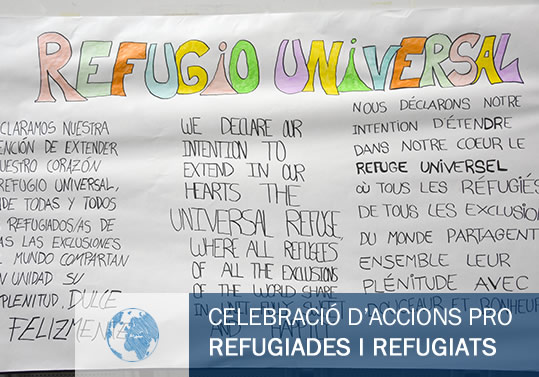 REFUGIO UNIVERSAL
CLARAMOS NUESTRA
NCIÓN DE EXTENDER
UESTRO CORAZÓN
REFUGIO UNIVERSAL,
DE TODAS Y TODOS
REFUGIADOS/AS DE
AS LAS EXCLUSIONES
MUNDO COMPARTAN
N UNIDAD SU
PLENITUD, DULCE
FELIZMENTE
WE DECLARE OUR
INTENTION TO
EXTEND IN OUR
HEARTS THE
UNIVERSAL REFUGE,
WHERE ALL REFUGEES
OF ALL THE EXCLUSIONS
OF THE WORLD SHARE
NOUS DÉCLARONS NOTRE
INTENTION D'ÉTENDRE
DANS NOTRE COEUR LE
REFUGE UNIVERSEL
OÙ TOUS LES RÉFUGIÉS
DE TOUS LES EXCLUSION
DU MONDE PARTAGENT
ENSEMBLE LEUR
PLÉNITUDE AVEC
DOUCEUR ET BONHEUR
CELEBRACIÓ D'ACCIONS PRO
REFUGIADES I REFUGIATS